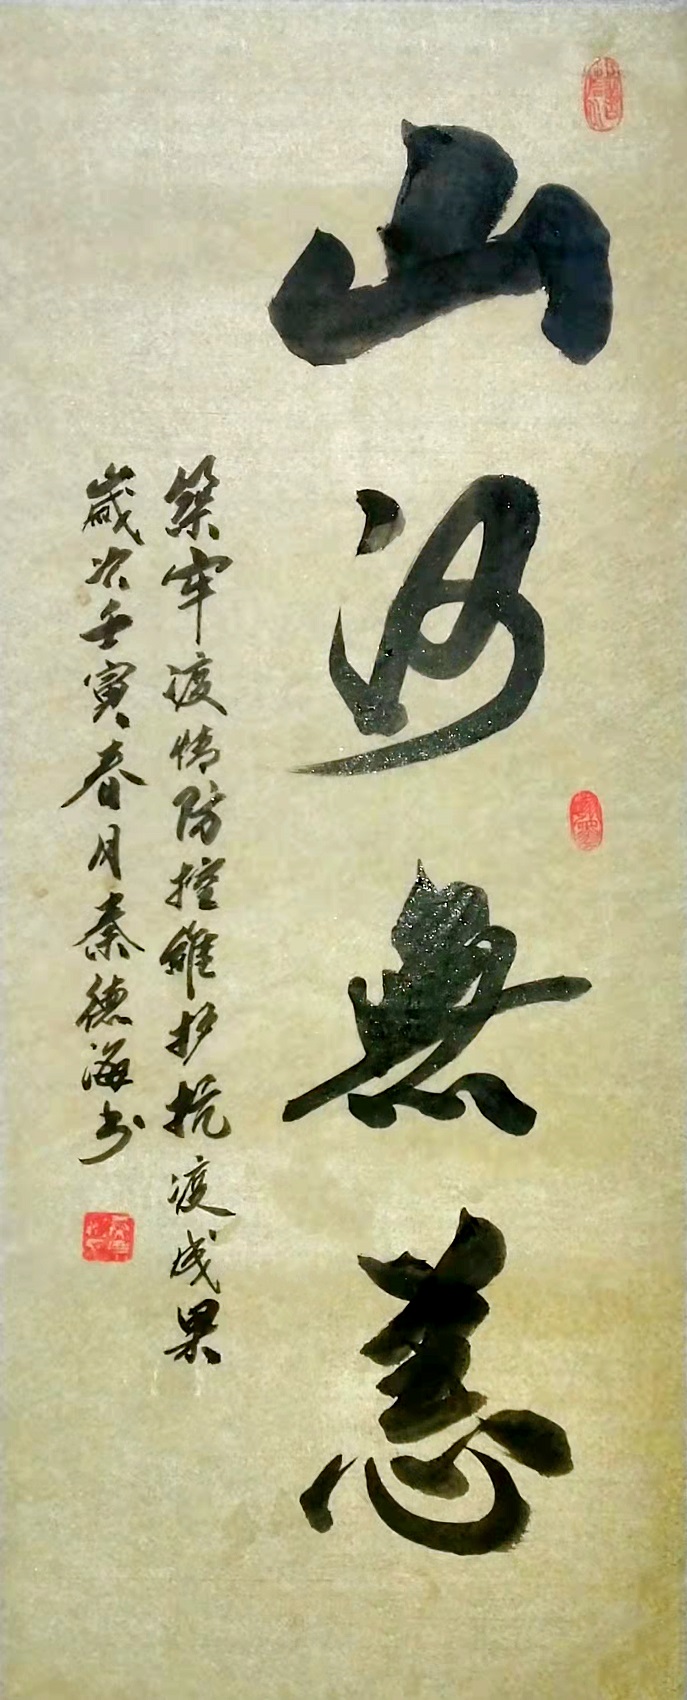 山河無恙
築牢疫情防控維护抗疫成果
歲次壬寅春月秦德海书